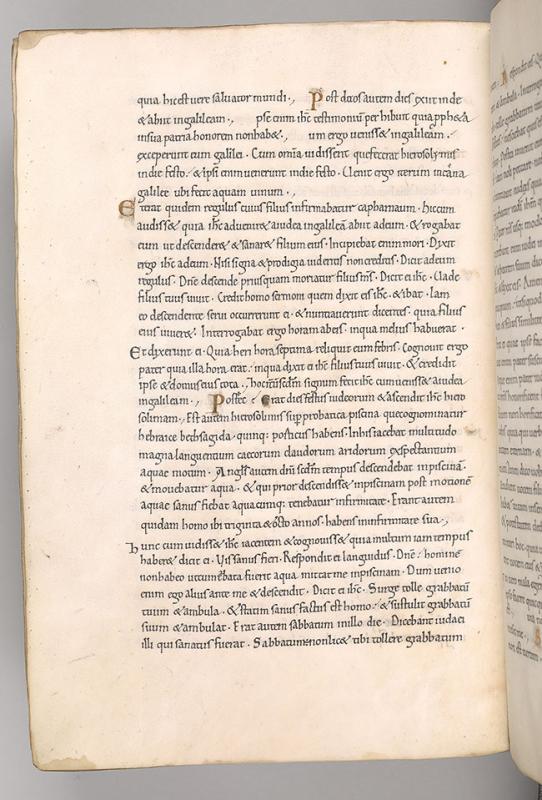 quia hic est vere salvator mundi ., Post duos autem dies exiit inde
& abiit ingalileam ., pse enim ihc testimonium per hibuit quia pph&a
insua patria honorem nonhabe& ., um ergo veniss& ingalileam .
exceperunt eum galilei . Cum omnia vidissent quefecerat hierosolymis
indie festo . & ipsi enim venerunt indie festo . Uenit ergo iterum incana
galilee ubi fecit aquam vinum .,
Et erat quidem regulus cuius filius infirmabatur capharnaum . Hiccum
audiss& quia ihc adveniret aiudea ingalileā abiit adeum . & rogabat
eum ut descender& & sanar& filium eius . Incipiebat enim mori . Dixit
ergo ihc adeum . Nisi signa & prodigia videritis noncreditis . Dicit adeum
regulus . Dne descende priusquam moriatur filius ms . Dicit ei ihc . Uade
filius tuus vivit . Credit homo sermoni quem dixit eis ihc . & ibat . Iam
eo descendente servi occurrerunt ei . & nuntiaverunt dicentes . quia filius
eius viver& . Interrogabat ergo horam abeis . inqua melius habuerat .
Et dixerunt ei . Quia heri hora septima reliquit eum febris . Cognovit ergo
pater quia illa hora erat . inqua dixit ei ihc filius tuus vivit . & credidit
ipse & domus eius tota . hoc iterum scdm signum fecit ihc cum veniss& aiudea
ingalileam ., Post ec . Erat dies festus iudeorum & ascendit ihc hiero
solimam ., Est autem hierosolimis sup probatica piscina quecognominatur
hebraice bethsagida . quinq: porticus habens . Inhis iacebat multitudo
magna languentium caecorum claudorum aridorum expectantium
aquae motum . Angls autem dni scdm tempus descendebat inpiscinā .
& movebatur aqua . & qui prior descendiss& inpiscinam post motione
aquae sanus fiebat aquacumq: tenebatur infirmitate . Erant autem
quidam homo ibi triginta & octo annos . habens ininfirmitate sua .,
hunc cum vidiss& ihc iacentem & cognoviss& quia multum iam tempus
haber& dicit ei . Vis sanus fieri . Respondit ei languidus . Dne . homine
nonhabeo utcum turbata fuerit aqua mittat me inpiscinam . Dum venio
enim ego alius ante me & descendit . Dicit ei ihc . Surge tolle grabbatū
tuum & ambula . & statim sanus factus est homo . & sustulit grabbatū
suum & ambulat . Erat autem sabbatum inillo die . Dicebant iudaei
illi qui sanatus fuerat . Sabbatum e nonlic& tibi tollere grabbatum